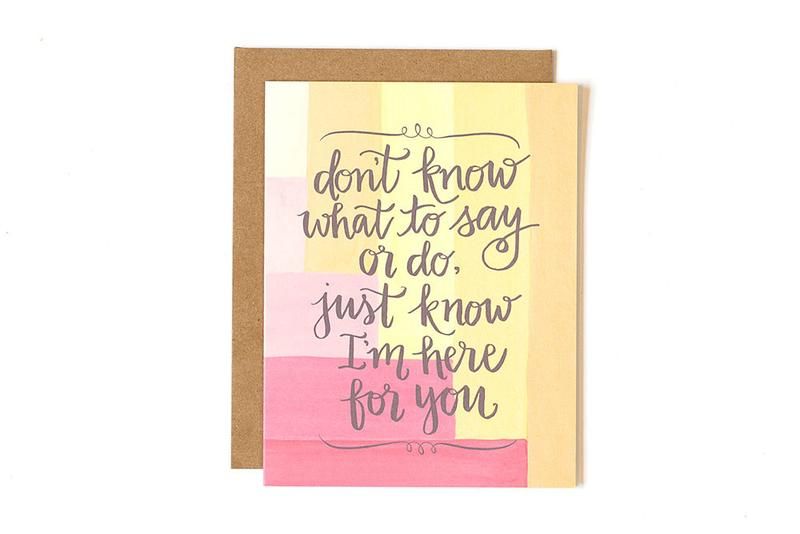 don't know
what to say
or do,
just know
I'm here
for you